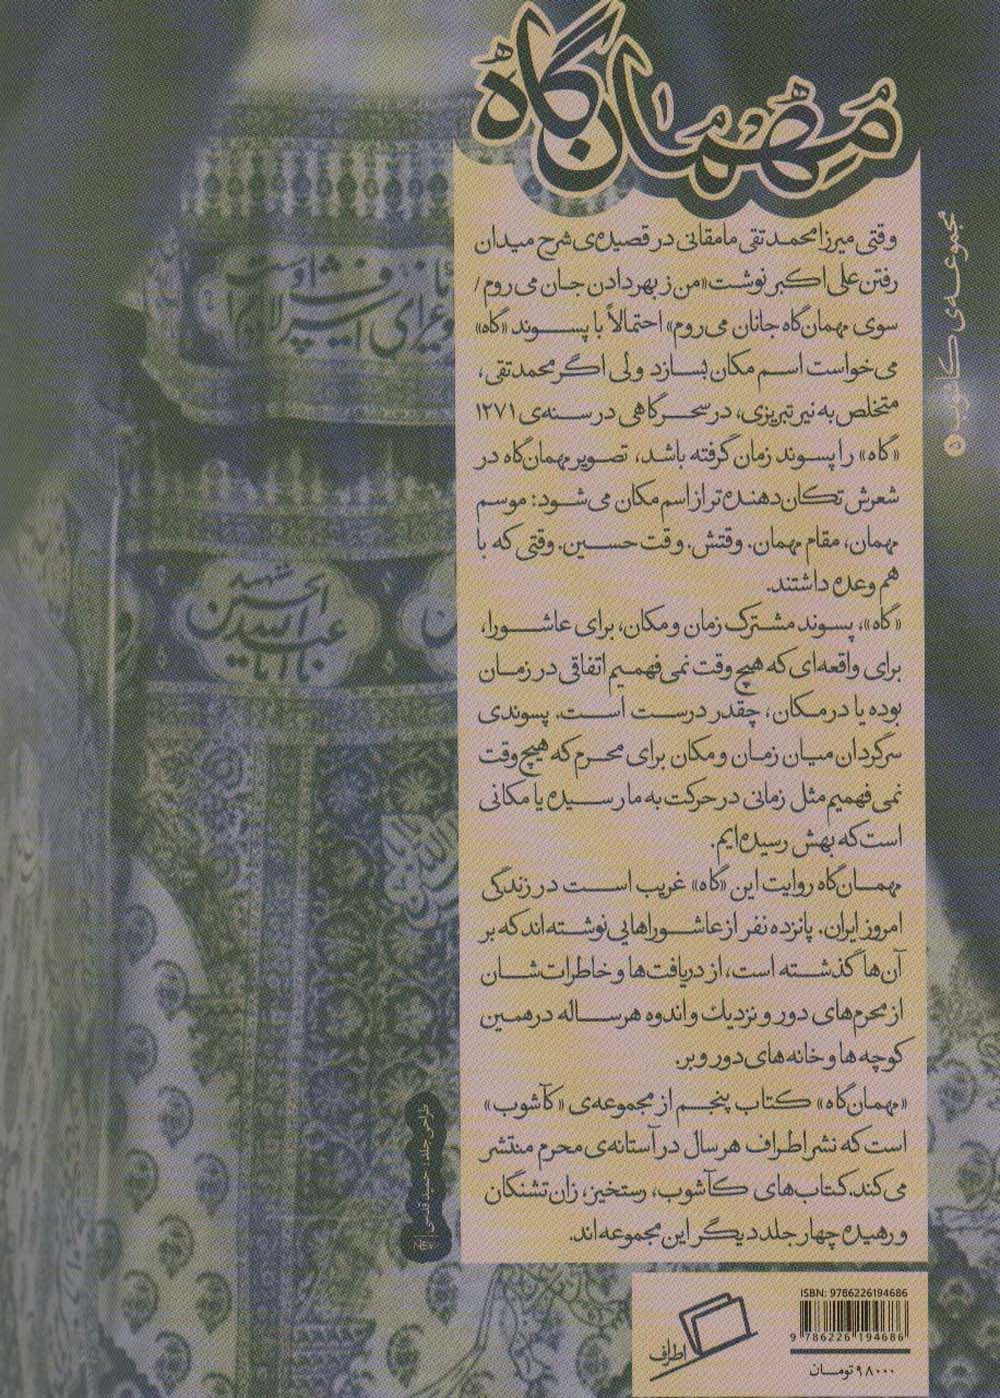 مهمان‌گاه
وقتی میرزا محمدتقی مامقانی در قصیده‌ی شرح میدان
رفتن علی اکبر نوشت «من ز بهر دادن جان می‌روم/
سوی مهمان‌گاه جانان می‌روم» احتمالاً با پسوند «گاه»
می‌خواست اسم مکان بسازد ولی اگر محمدتقی،
متخلص به نیر تبریزی، در سحرگاهی در سنه‌ی ۱۲۷۱
«گاه» را پسوند زمان گرفته باشد، تصویر مهمان‌گاه در
شعرش تکان‌دهنده‌تر از اسم مکان می‌شود: موسم
مهمان، مقام مهمان. وقتش. وقت حسین. وقتی که با
هم وعده داشتند.
«گاه»، پسوند مشترک زمان و مکان، برای عاشورا،
برای واقعه‌ای که هیچ وقت نمی‌فهمیم اتفاقی در زمان
بوده یا در مکان، چقدر درست است. پسوندی
سرگردان میان زمان و مکان برای محرم که هیچ وقت
نمی‌فهمیم مثل زمانی در حرکت به ما رسیده یا مکانی
است که بهش رسیده‌ایم.
مهمان‌گاه روایت این «گاه» غریب است در زندگی
امروز ایران. پانزده نفر از عاشوراهایی نوشته‌اند که بر
آن‌ها گذشته است، از دریافت‌ها و خاطرات‌شان
از محرم‌های دور و نزدیک و اندوه هرساله در همین
کوچه‌ها و خانه‌های دور و بر.
«مهمان‌گاه» کتاب پنجم از مجموعه‌ی «کآشوب»
است که نشر اطراف هر سال در آستانه‌ی محرم منتشر
می‌کند. کتاب‌های کآشوب، رستخیز، زان تشنگان
و رهیده چهار جلد دیگر این مجموعه‌اند.
مجموعه‌ی کآشوب ۵
شهید
ابا عبدالله الحسین
طراحی جلد: حمید قدسی
اطراف
ISBN: 9786226194686
9 786226 194686
۹۸۰۰۰ تومان